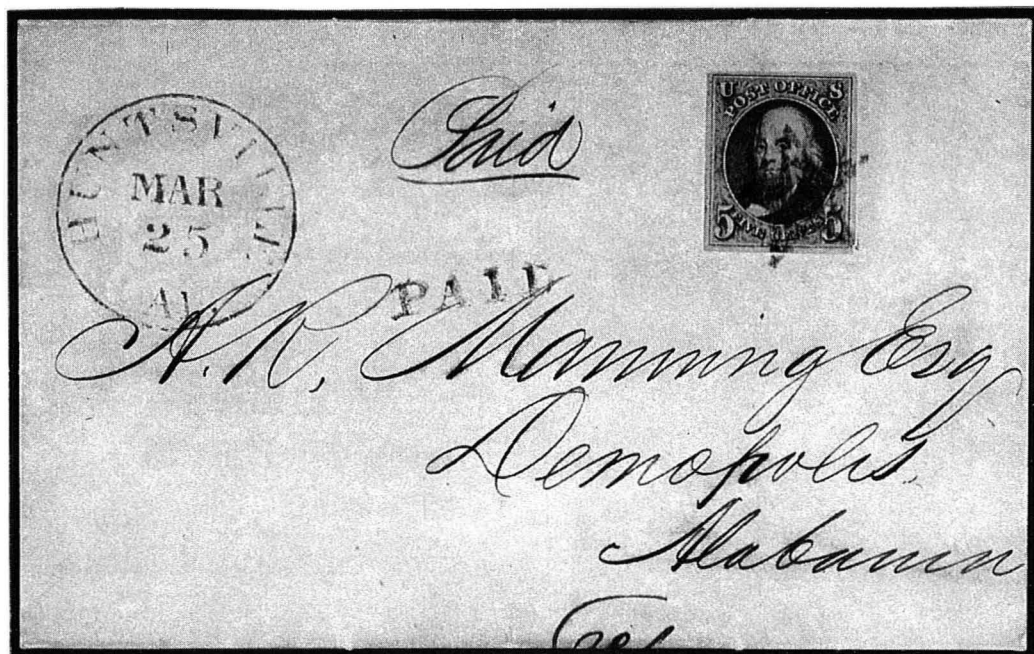 HUNTSVILLE
MAR
25
Al.
Paid
PAID
U S
POST OFFICE
5 FIVE CENTS 5
A. R. Manning Esq
Demopolis
Alabama